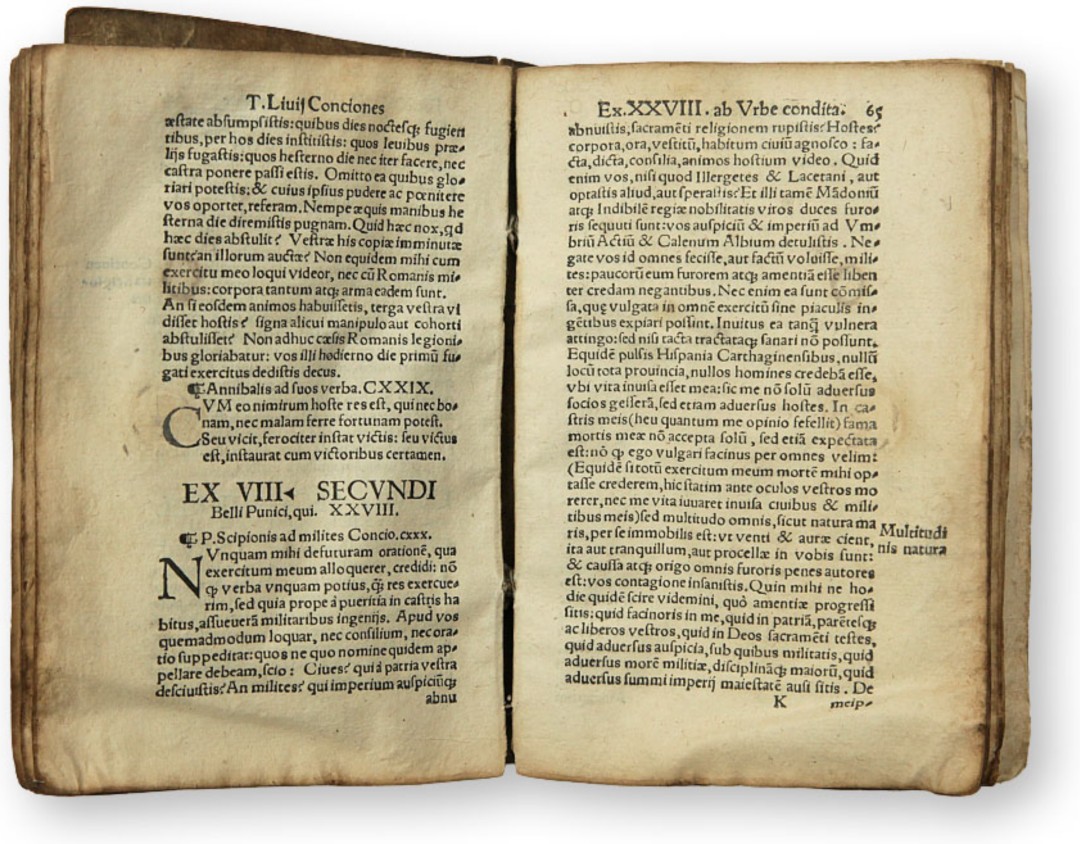 T. Liuij Conciones
æstate absumpsistis: quibus dies noctesq; fugien
tibus, per hos dies institistis: quos leuibus præ-
lijs fugastis: quos hesterno die nec iter facere, nec
castra ponere passi estis. Omitto ea quibus glo-
riari potestis; & cuius ipsius pudere ac pœnitere
vos oportet, referam. Nempe æquis manibus he
sterna die diremistis pugnam. Quid hæc nox, qd
hæc dies abstulit? Vestræ his copiæ imminutæ
sunt: an illorum auctæ? Non equidem mihi cum
exercitu meo loqui videor, nec cũ Romanis mi-
litibus: corpora tantum atq; arma eadem sunt.
An si eosdem animos habuissetis, terga vestra vi
disset hostis? signa alicui manipulo aut cohorti
abstulisset? Non adhuc cæsis Romanis legioni-
bus gloriabatur: vos illi hodierno die primũ fu-
gati exercitus dedistis decus.
¶ Annibalis ad suos verba. CXXIX.
CVM eo nimirum hoste res est, qui nec bo-
nam, nec malam ferre fortunam potest.
Seu vicit, ferociter instat victis: seu victus
est, instaurat cum victoribus certamen.
EX VIII SECVNDI
Belli Punici, qui. XXVIII.
¶ P. Scipionis ad milites Concio. cxxx.
NVnquam mihi defuturam orationẽ, qua
exercitum meum alloquerer, credidi: nõ
qɂ verba vnquam potius, q̃; res exercue-
rim, sed quia prope à pueritia in castris ha
bitus, assueuerã militaribus ingenijs. Apud vos
quemadmodum loquar, nec consilium, nec ora-
tio suppeditat: quos ne quo nomine quidem ap-
pellare debeam, scio: Ciues? qui à patria vestra
desciuistis? An milites? qui imperium auspiciũq;
abnu
Ex. XXVIII. ab Vrbe condita. 65
abnuistis, sacramẽti religionem rupistis? Hostes?
corpora, ora, vestitũ, habitum ciuiũ agnosco: fa-
cta, dicta, consilia, animos hostium video. Quid
enim vos, nisi quod Illergetes & Lacetani, aut
optastis aliud, aut sperastis? Et illi tamẽ Mãdoniũ
atq; Indibilẽ regiæ nobilitatis viros duces furo-
ris sequuti sunt: vos auspiciũ & imperiũ ad Vm-
briũ Actiũ & Calenum Albium detulistis. Ne-
gate vos id omnes fecisse, aut factũ voluisse, mili-
tes: paucorũ eum furorem atq; amentiã esse liben
ter credam negantibus. Nec enim ea sunt cõmis-
sa, quę vulgata in omnẽ exercitũ sine piaculis in-
gẽtibus expiari possint. Inuitus ea tanq̃ vulnera
attingo: sed nisi tacta tractataq; sanari nõ possunt.
Equidẽ pulsis Hispania Carthaginensibus, nullũ
locũ tota prouincia, nullos homines credebã esse,
vbi vita inuisa esset mea: sic me nõ solũ aduersus
socios gesserã, sed etiam aduersus hostes. In ca-
stris meis (heu quantum me opinio fefellit) fama
mortis meæ nõ accepta solũ, sed etiã expectata
est: nõ qɂ ego vulgari facinus per omnes velim:
(Equidẽ si totũ exercitum meum mortẽ mihi op-
tasse crederem, hic statim ante oculos vestros mo
rerer, nec me vita iuuaret inuisa ciuibus & mili-
tibus meis) sed multitudo omnis, sicut natura ma
ris, per se immobilis est: vt venti & auræ cient,
ita aut tranquillum, aut procellæ in vobis sunt:
& caussa atq; origo omnis furoris penes autores
est: vos contagione insanistis. Quin mihi ne ho-
die quidẽ scire videmini, quò amentiæ progressi
sitis: quid facinoris in me, quid in patriã, parẽtesq;
ac liberos vestros, quid in Deos sacramẽti testes,
quid aduersus auspicia, sub quibus militatis, quid
aduersus morẽ militiæ, disciplinãq; maiorũ, quid
aduersus summi imperij maiestatẽ ausi sitis. De
K meip-
Multitudi
nis natura